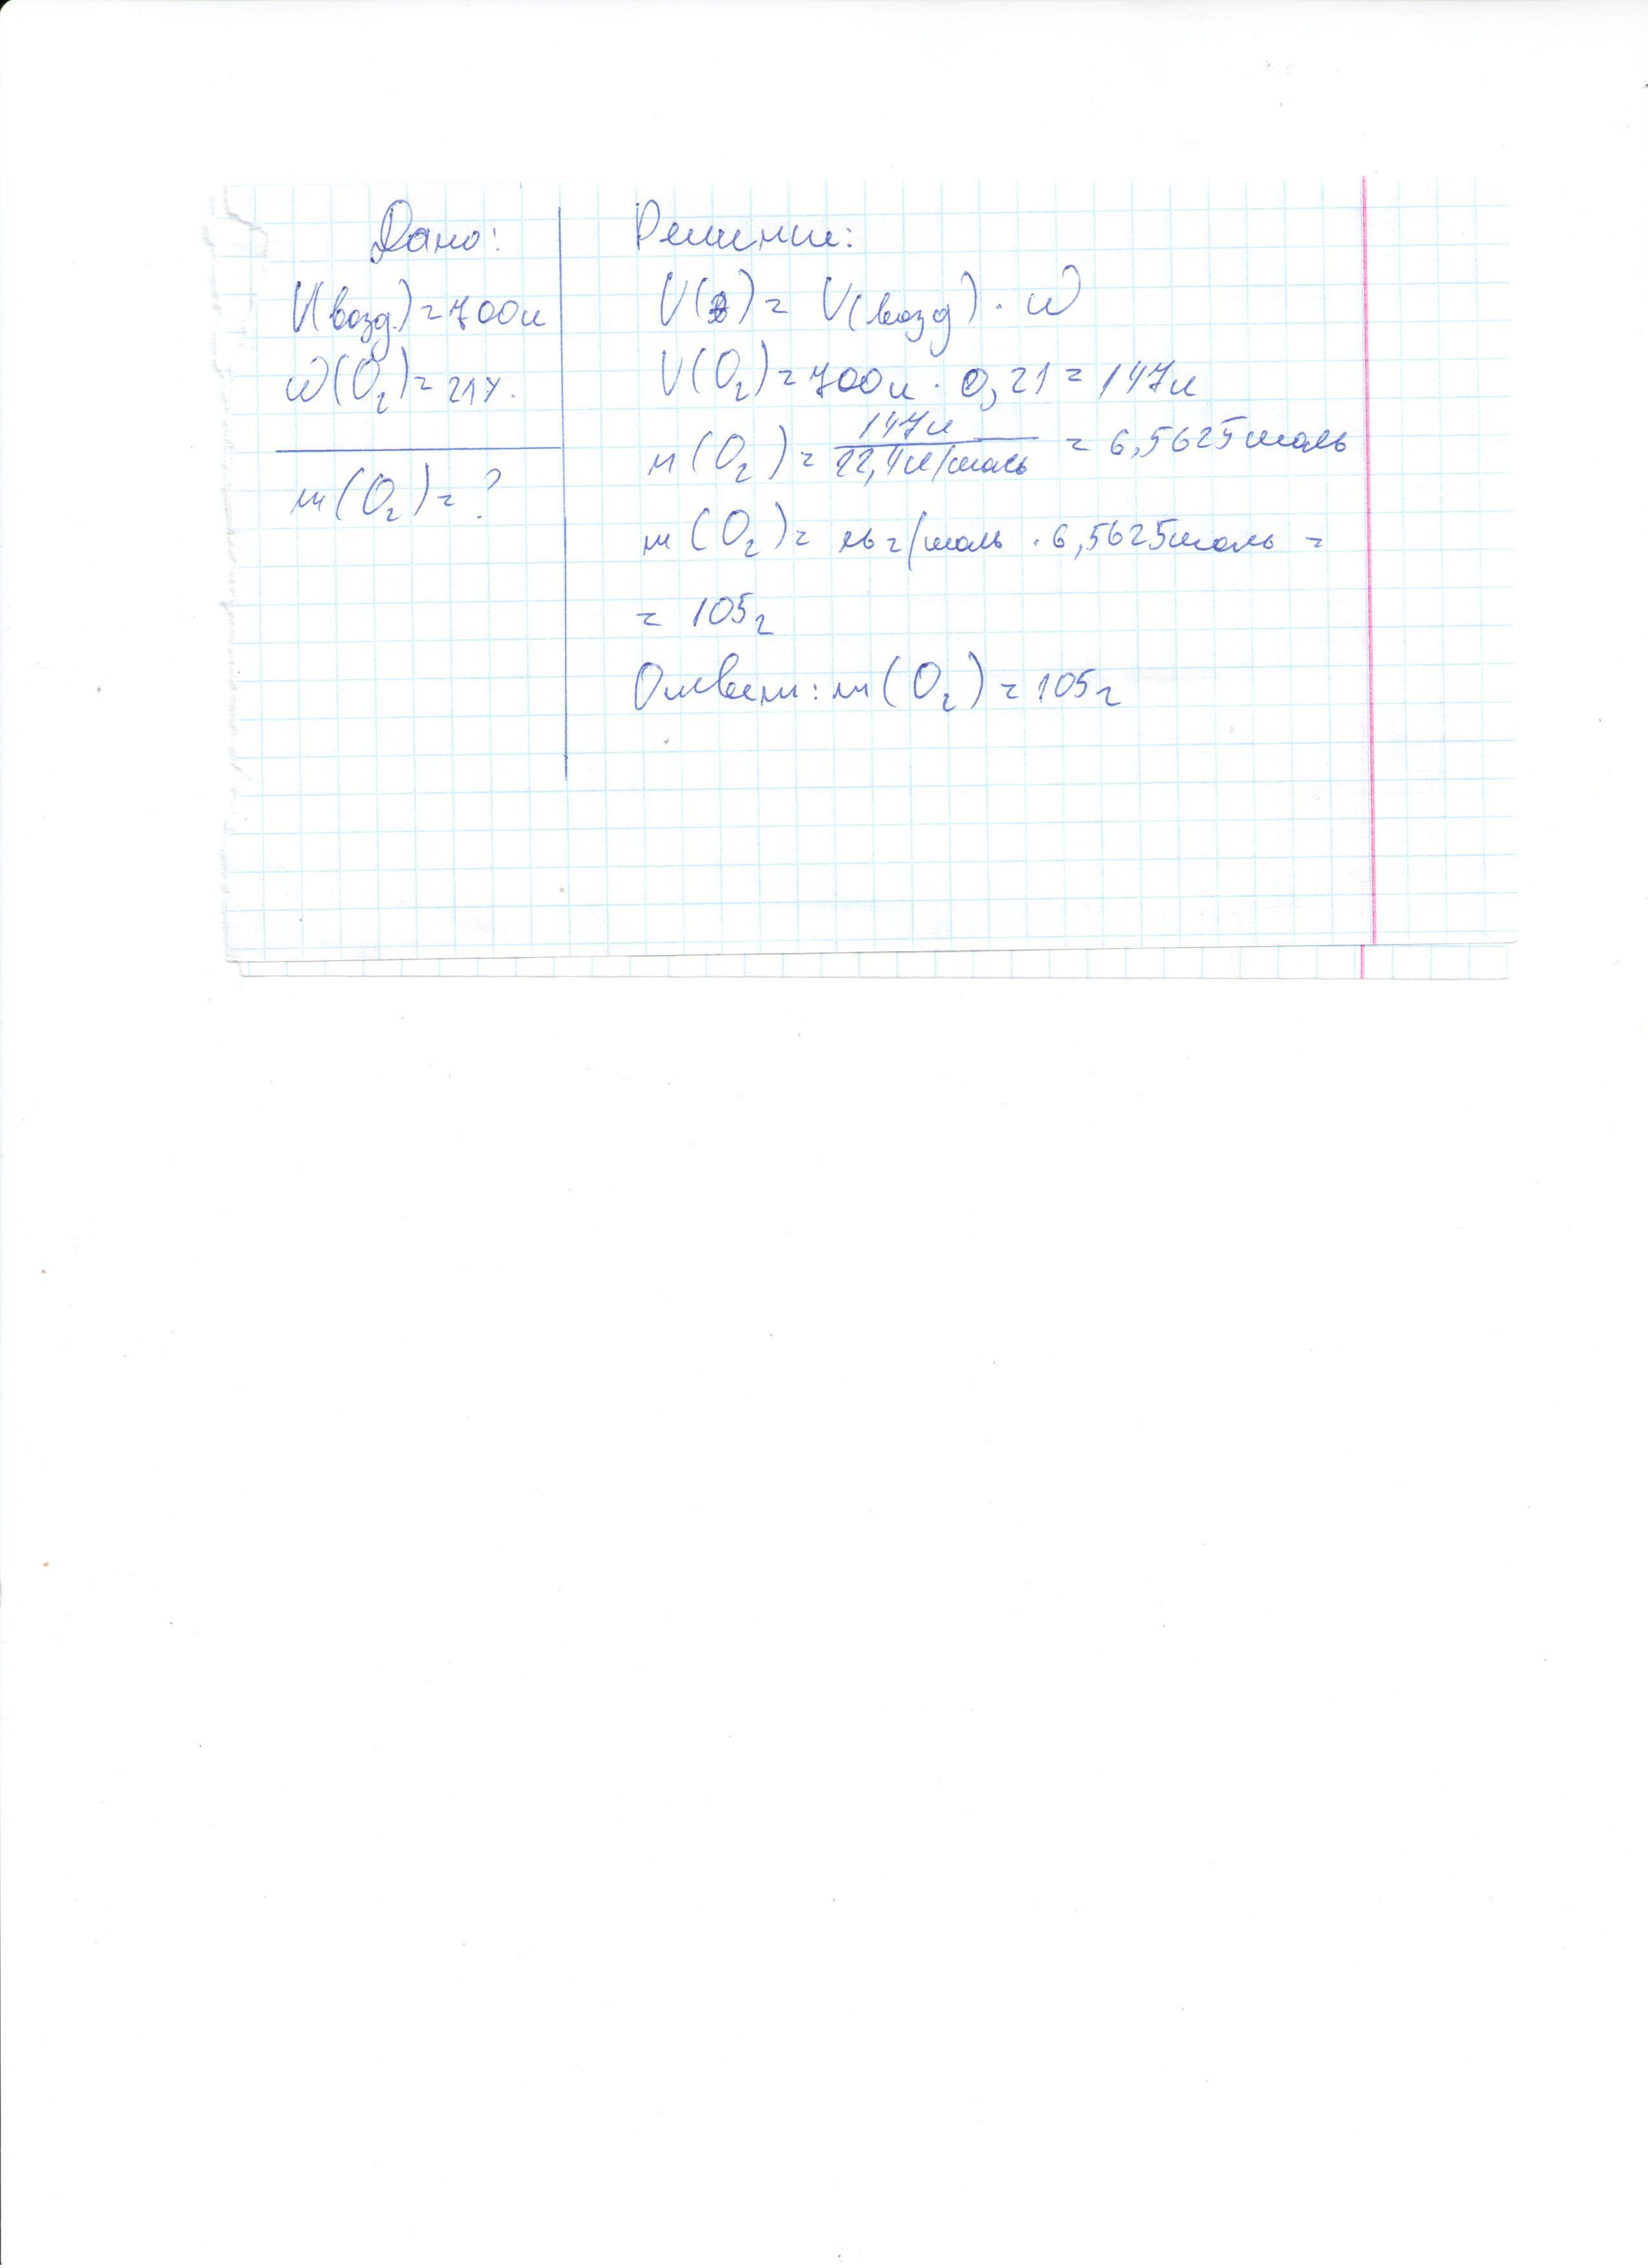 Дано:
V(возд.) = 700л
ω(O₂) = 21%.
m(O₂) = ?
Решение:
V(O₂) = V(возд) · ω
V(O₂) = 700л · 0,21 = 147л
n(O₂) = 147л / 22,4л/моль = 6,5625моль
m(O₂) = 16г/моль · 6,5625моль =
= 105г
Ответ: m(O₂) = 105г